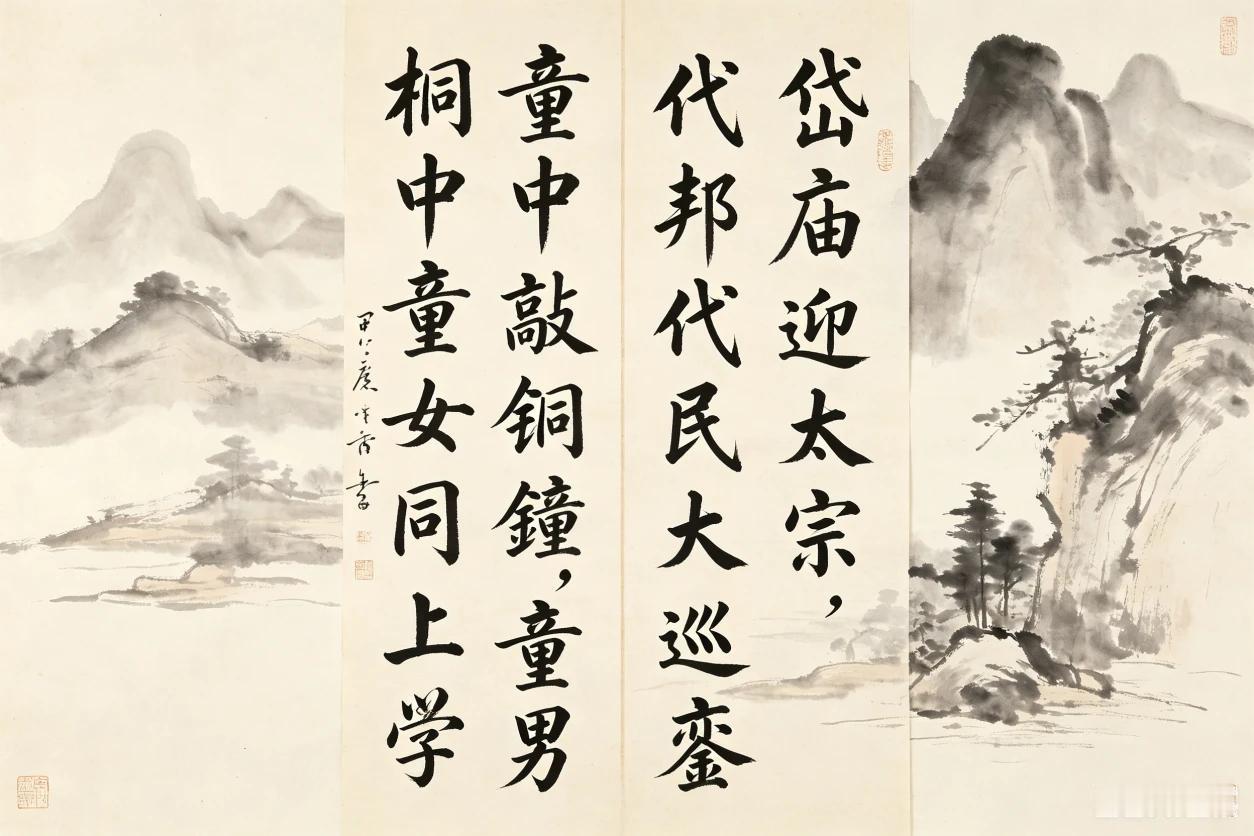 岱庙迎太宗，
代邦代民大巡銮
童中敲铜鐘，童男
桐中童女同上学